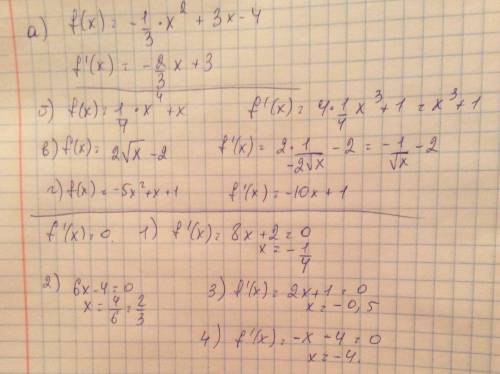 а) f(x) = -1/3 · x² + 3x - 4
f'(x) = -2/3 x + 3
б) f(x) = 1/4 · x⁴ + x   f'(x) = 4 · 1/4 x³ + 1 = x³ + 1
в) f'(x) = 2√x - 2   f'(x) = 2 · 1/-2√x - 2 = -1/√x - 2
г) f(x) = -5x² + x + 1   f'(x) = -10x + 1
f'(x) = 0.   1) f'(x) = 8x + 2 = 0
x = -1/4
2) 6x - 4 = 0   3) f'(x) = 2x + 1 = 0
x = 4/6 = 2/3   x = -0,5
4) f'(x) = -x - 4 = 0
x = -4.